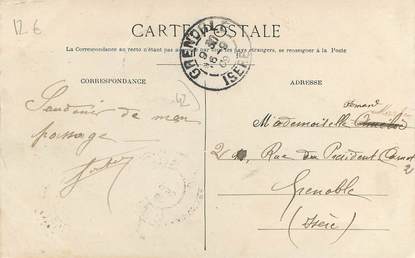 12 €
CARTE POSTALE
La Correspondance au recto n'étant pas acceptée par tous les pays étrangers, se renseigner à la Poste
GRENOBLE
ISERE
CORRESPONDANCE
ADRESSE
42
Souvenir de mon
passage
Mademoiselle
2, Rue du Président Carnot
2
Grenoble
(Isère)